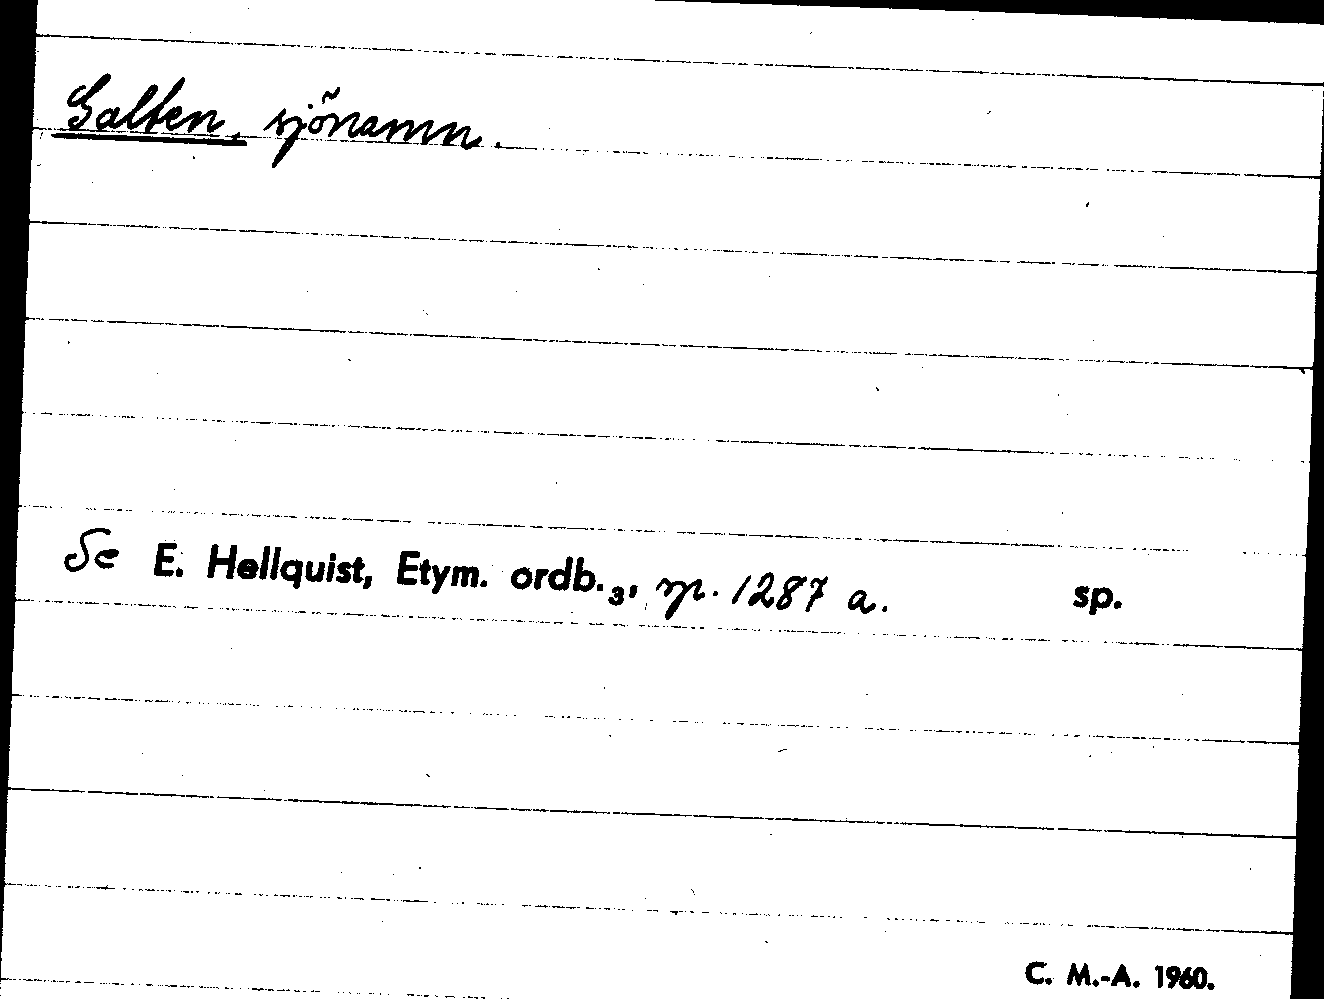 Galten, sjönamn.
Se E. Hellquist, Etym. ordb.₃, sp. 1287 a. sp.
C. M.-A. 1960.